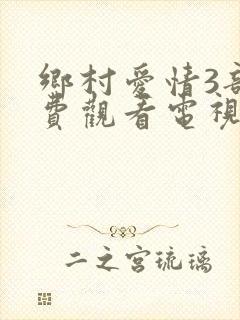 鄉村愛情3
費觀看電視
二之宮琉璃